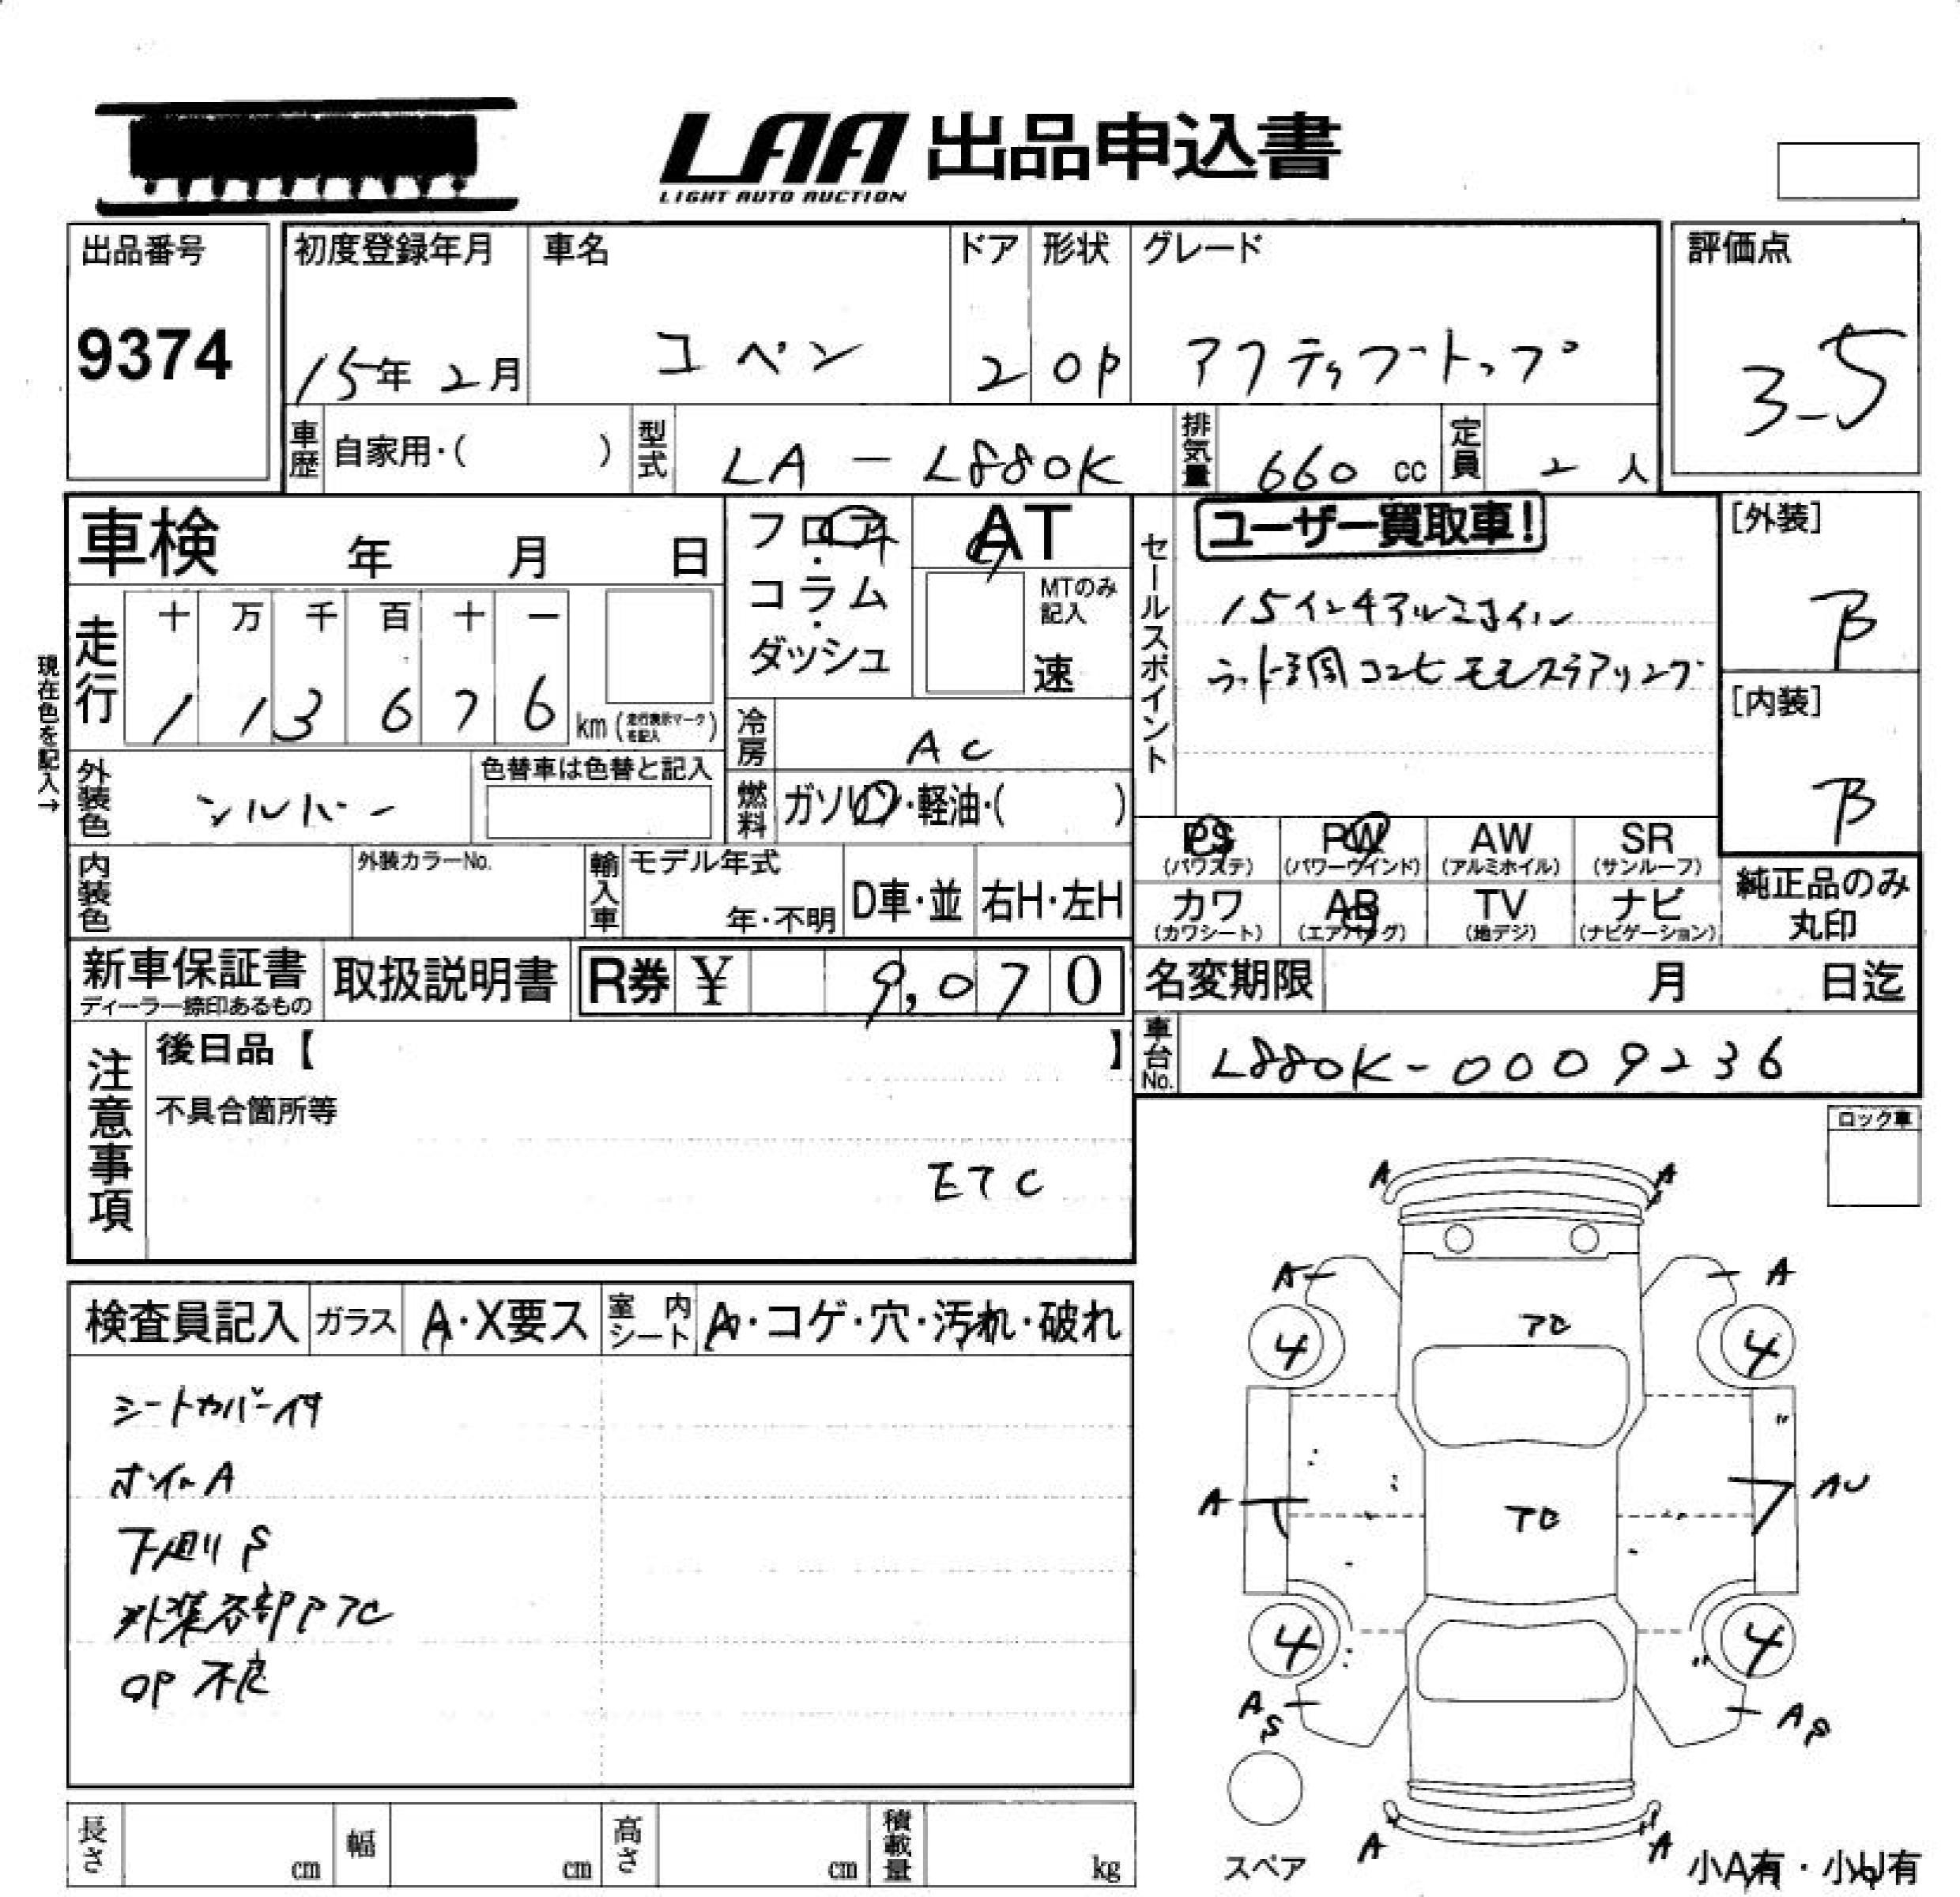 LAA 出品申込書
LIGHT AUTO AUCTION
出品番号
9374
初度登録年月
15年 2月
車名
コペン
ドア
2
形状
OP
グレード
アクティブトップ
評価点
3.5
車歴 自家用・( )
型式 LA - L880K
排気量 660 cc
定員 2 人
車検 年 月 日
現在色を記入→
走行
十 万 千 百 十 一
1 1 3 6 7 6 km (走行表示マークを記入)
外装色 シルバー
色替車は色替と記入
内装色
外装カラーNo.
フロア・
コラム・
ダッシュ
AT
MTのみ記入
速
冷房 AC
燃料 ガソリン・軽油・( )
輸入車 モデル年式
年・不明
D車・並
右H・左H
セールスポイント
ユーザー買取車!
15インチアルミホイル
モモステアリング
[外装]
B
[内装]
B
PS
(パワステ)
PW
(パワーウインド)
AW
(アルミホイル)
SR
(サンルーフ)
カワ
(カワシート)
AB
(エアバッグ)
TV
(地デジ)
ナビ
(ナビゲーション)
純正品のみ
丸印
新車保証書
ディーラー捺印あるもの
取扱説明書
R券 ¥ 9,070
名変期限 月 日迄
車台No. L880K-0009236
注意事項
後日品【 】
不具合箇所等
ETC
ロック車
検査員記入
ガラス A・X要ス
室内シート A・コゲ・穴・汚れ・破れ
シートカバー付
ホイルA
下廻りS
外装各部PTC
OP不良
A A
A A
TC
4 4
A AU
TC
4 4
AS AP
A A
スペア
小A有・小U有
長さ cm
幅 cm
高さ cm
積載量 kg